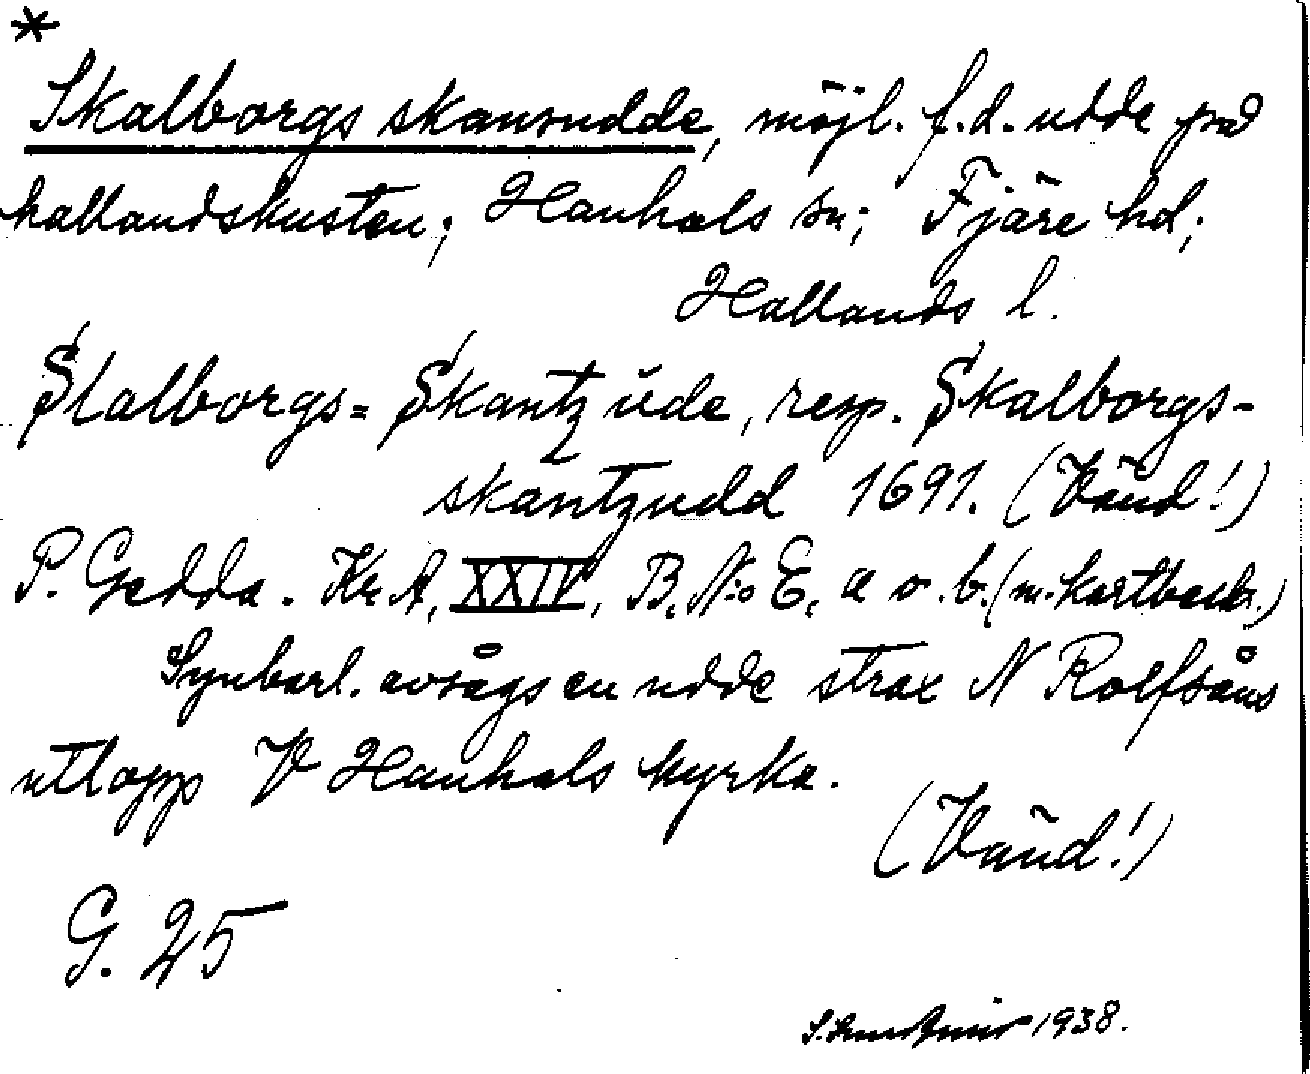 *
Skalborgs skansudde, möjl. f.d. udde på
hallandskusten; Hanhals sn; Fjäre hd;
Hallands l.
Slalborgs= Skantz ude, resp. Skalborgs-
skantzudd 1691. (Vänd!)
P. Gedda. Kr. A. XXIV, B. N:o E, a o. b. (m. kartbeskr.)
Synbarl. avsågs en udde strax N Rolfsåns
utlopp V Hanhals kyrka.
(Vänd!)
G. 25
1938.